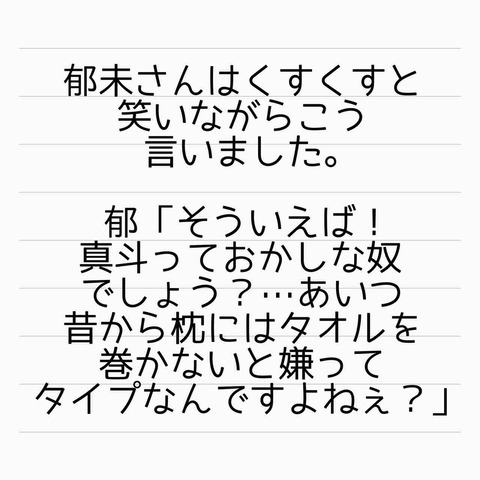 郁未さんはくすくすと
笑いながらこう
言いました。
郁「そういえば！
真斗っておかしな奴
でしょう？…あいつ
昔から枕にはタオルを
巻かないと嫌って
タイプなんですよねぇ？」